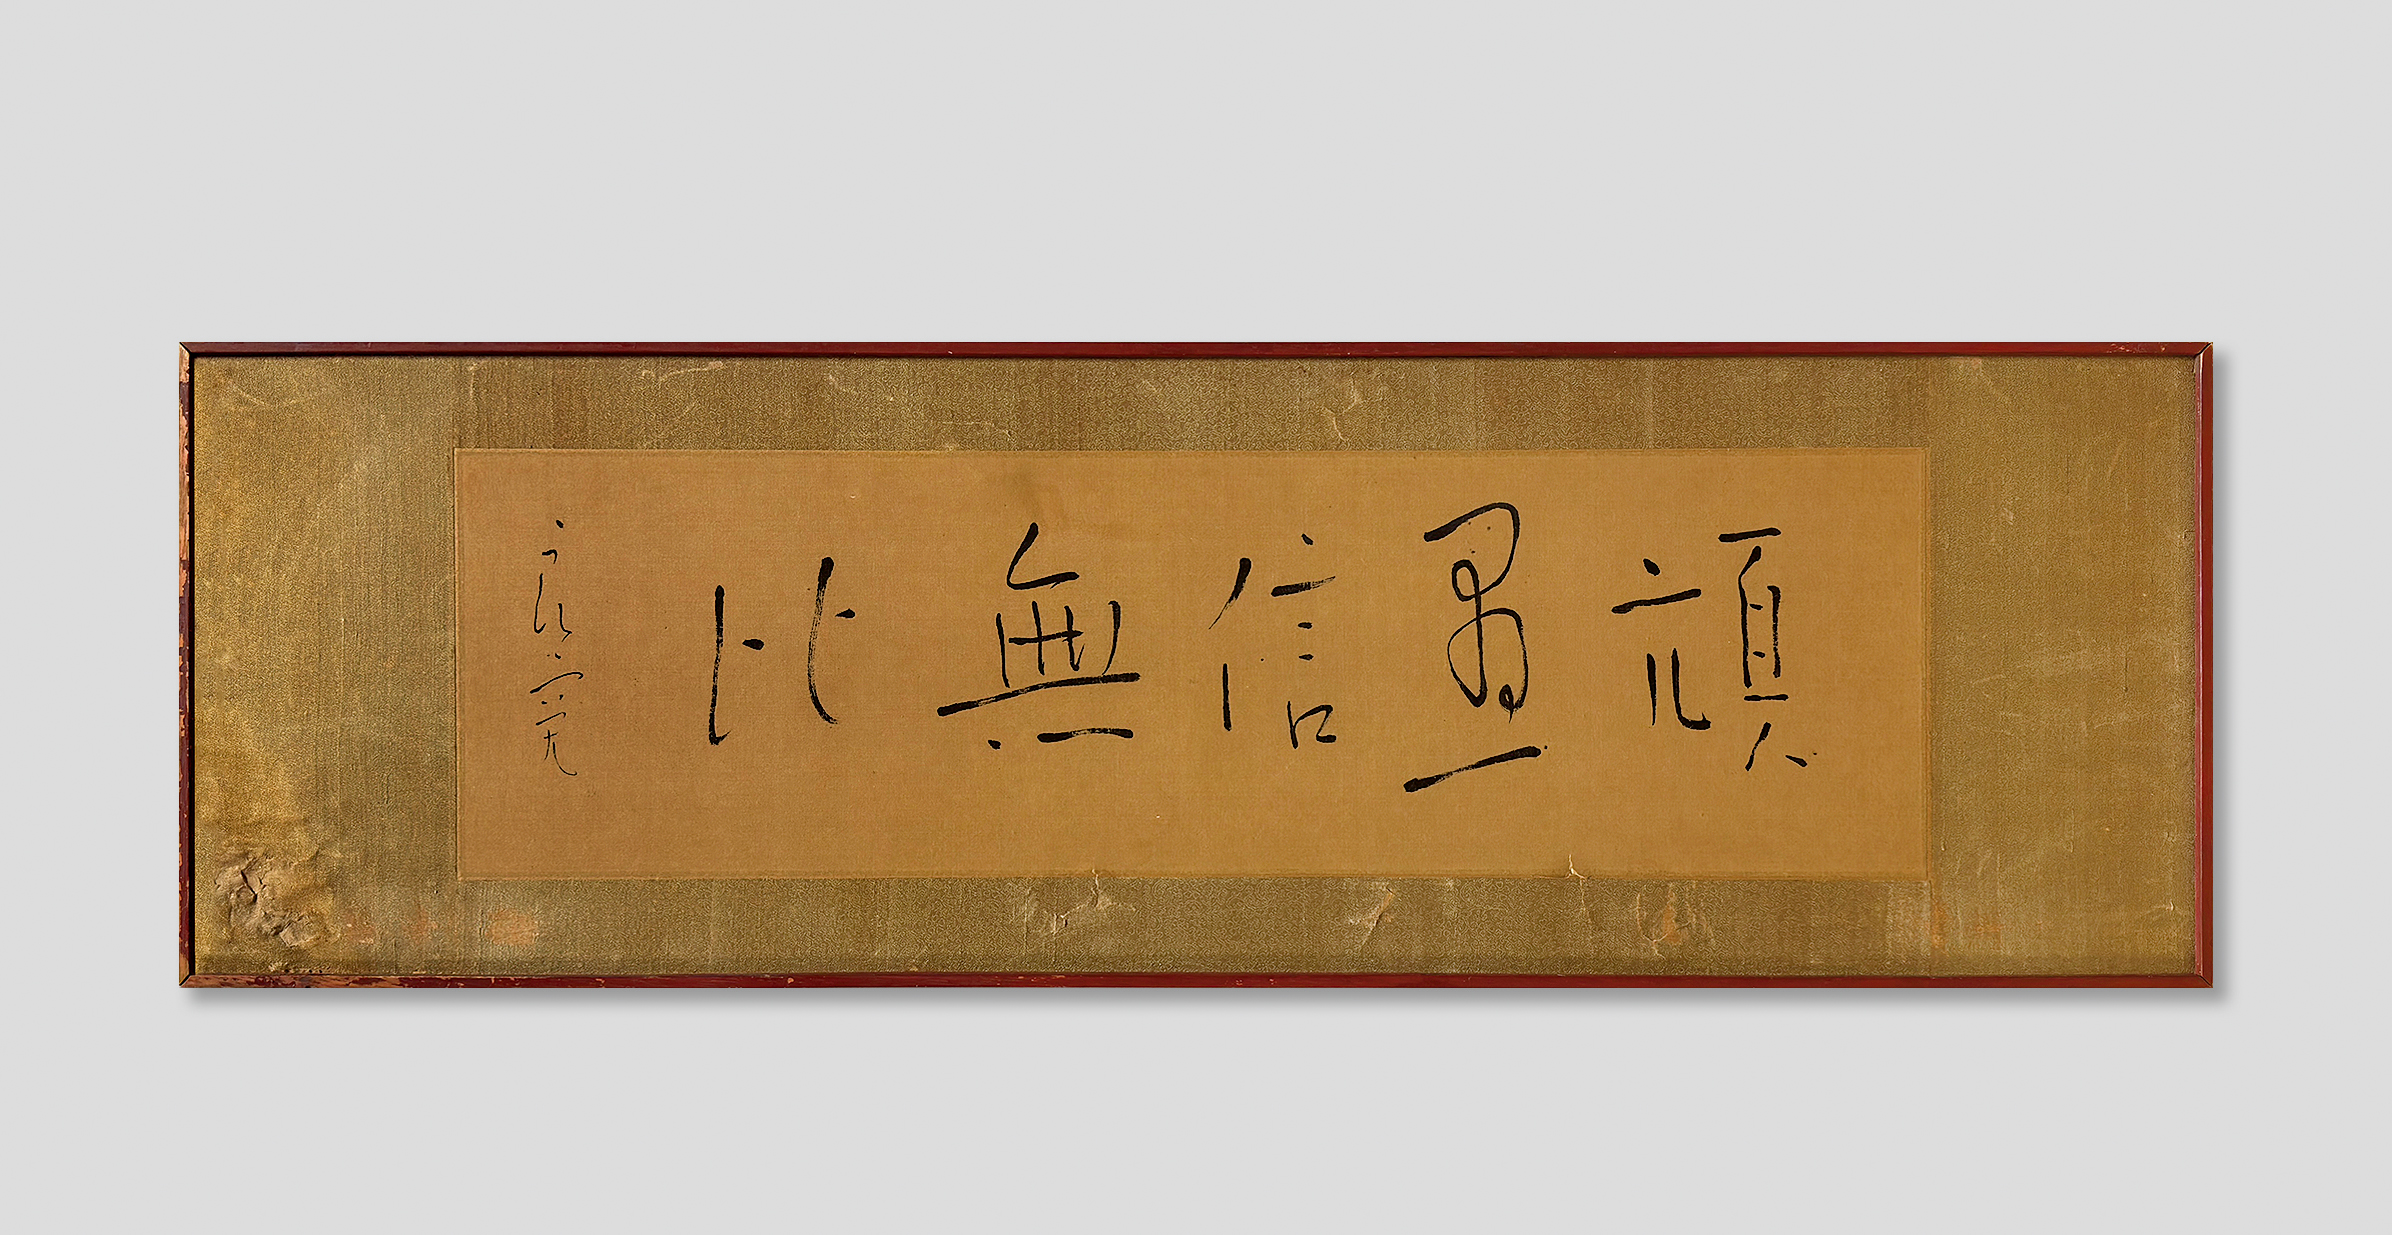 頑愚信無比
良寛